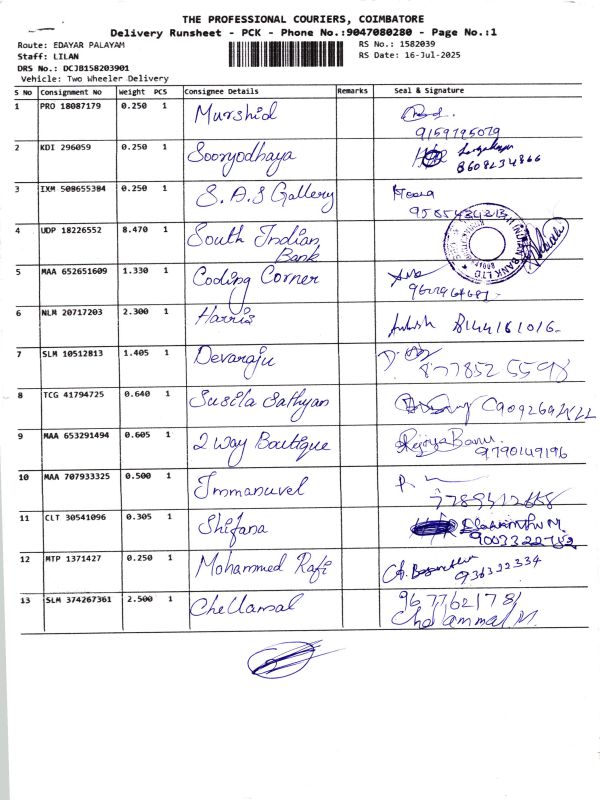 THE PROFESSIONAL COURIERS, COIMBATORE
Delivery Runsheet - PCK - Phone No.:9047080280 - Page No.:1
Route: EDAYAR PALAYAM
Staff: LILAN
DRS No.: DCJB158203901
Vehicle: Two Wheeler Delivery
RS No.: 1582039
RS Date: 16-Jul-2025
S No Consignment No Weight PCS Consignee Details Remarks Seal & Signature
1 PRO 18087179 0.250 1 Murshid
9159795079
2 KDI 296059 0.250 1 Sooryodhaya
8608234866
3 IXM 508655384 0.250 1 S.A.S Gallery
4 UDP 18226552 8.470 1 South Indian
Bank
5 MAA 652651609 1.330 1 Coding Corner
6 NLM 20717203 2.300 1 Harris
8144161016
7 SLM 10512813 1.405 1 Devaraju
877852 5598
8 TCG 41794725 0.640 1 Susila Sathyan
9 MAA 653291494 0.605 1 2 Way Boutique
Banu
9790149196
10 MAA 707933325 0.500 1 Immanuvel
11 CLT 30541096 0.305 1 Shifana
12 MTP 1371427 0.250 1 Mohammed Rafi
13 SLM 374267361 2.500 1 Chellamal
9677621781
Chellammal M.